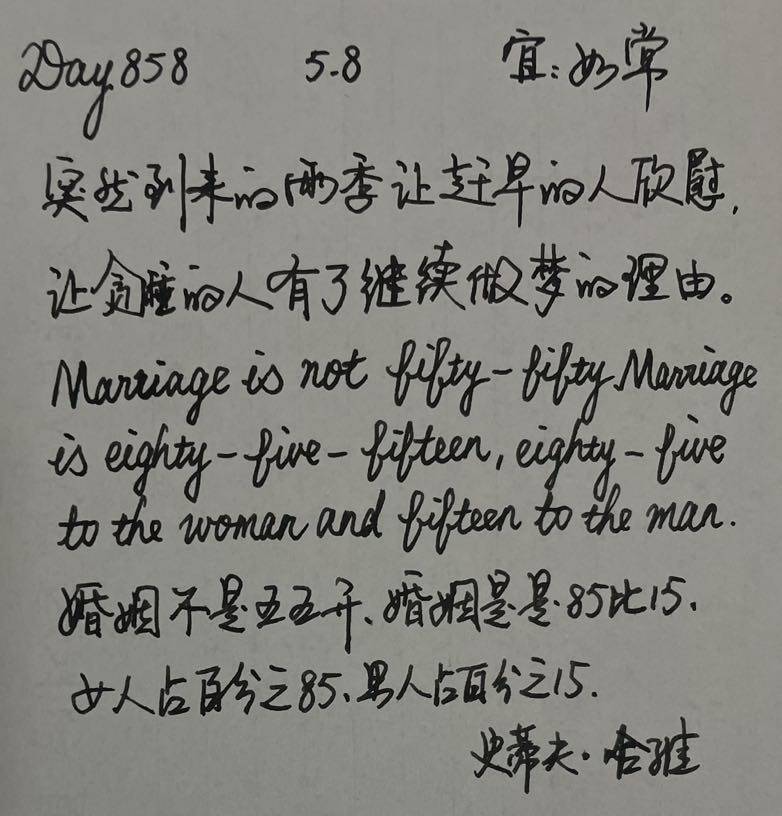 Day 858 5.8 宜:如常
突然到来的雨季让赶早的人欣慰,
让贪睡的人有了继续做梦的理由。
Marriage is not fifty-fifty. Marriage
is eighty-five-fifteen, eighty-five
to the woman and fifteen to the man.
婚姻不是五五开、婚姻是是85比15.
女人占百分之85、男人占百分之15.
史蒂夫·哈维